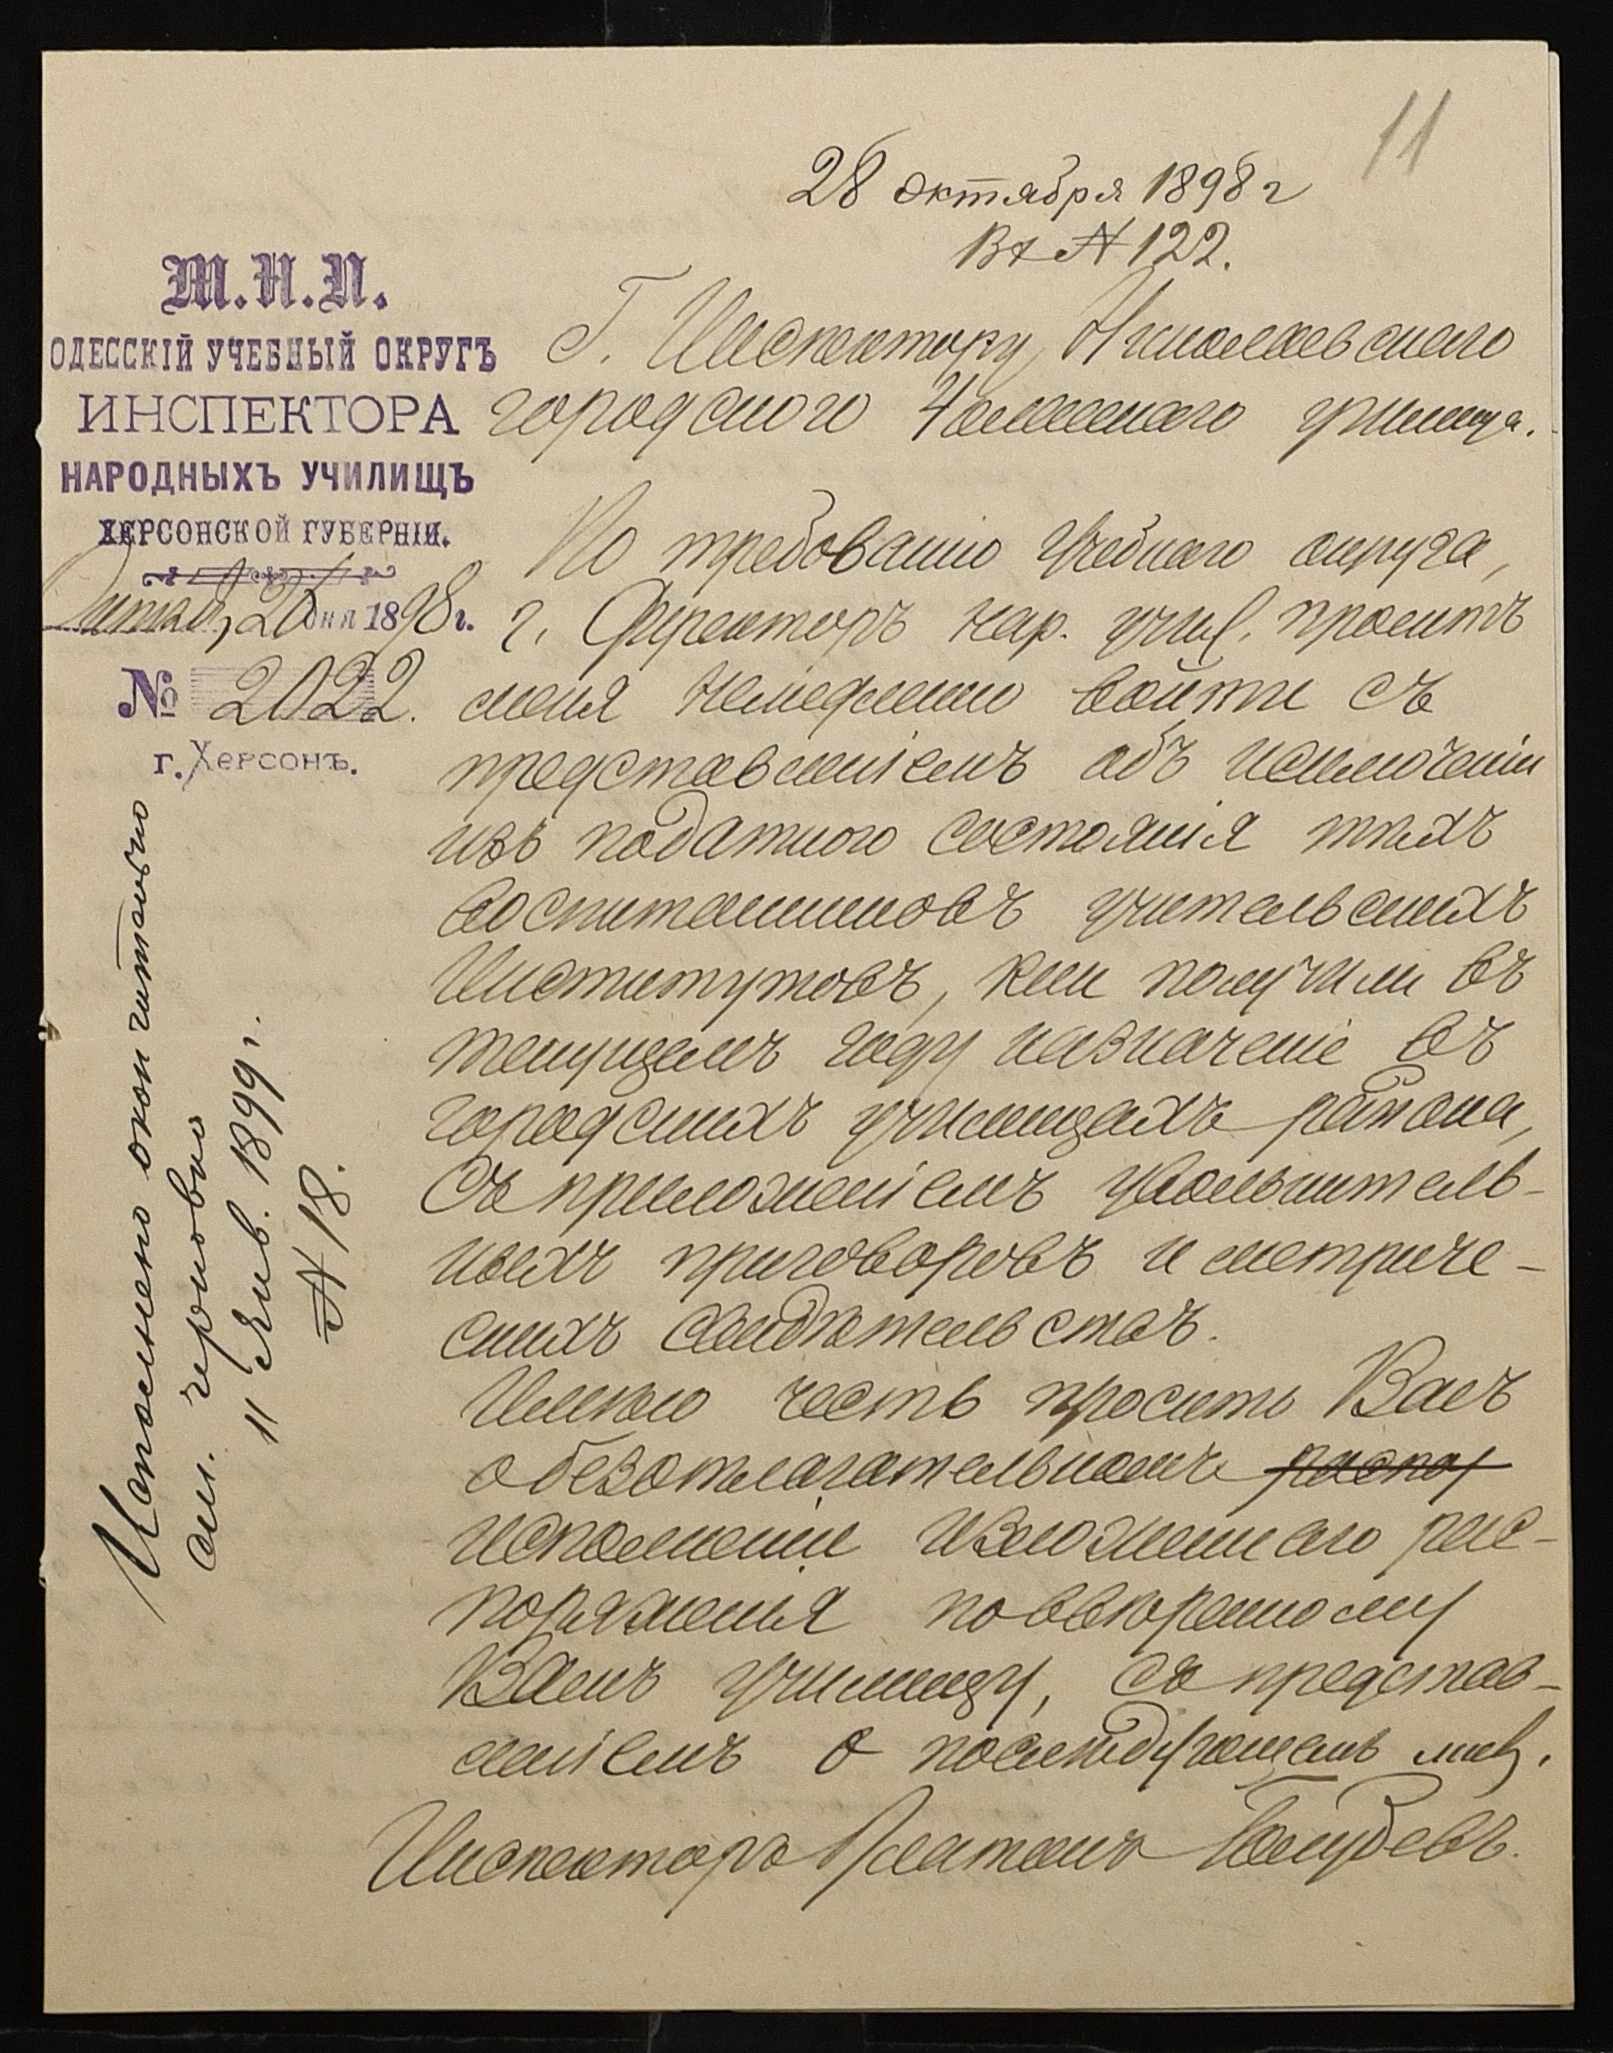 11
28 октября 1898 г
Вх № 122.
М.Н.П.
ОДЕССКІЙ УЧЕБНЫЙ ОКРУГЪ
ИНСПЕКТОРА
НАРОДНЫХЪ УЧИЛИЩЪ
ХЕРСОНСКОЙ ГУБЕРНІИ.
дня 1898 г.
№ 2022.
г. Херсонъ.
Г. Инспектору Николаевскаго
городского 4классного училища.
По требованію Учебнаго округа,
г. Директоръ нар. учил. проситъ
меня немедленно войти съ
представленіемъ объ исключеніи
изъ податного состоянія тѣхъ
воспитанниковъ учительскихъ
Институтовъ, кои получили въ
текущемъ году назначеніе въ
городскихъ училищахъ района,
съ приложеніемъ увольнитель-
ныхъ приговоровъ и метриче-
скихъ свидѣтельствъ.
Имѣю честь просить Васъ
о безотлагательномъ распор
исполненіи изложеннаго рас-
поряженія по ввѣренному
Вамъ училищу, съ представ-
леніемъ о послѣдующемъ мнѣ.
Инспекторъ Платонъ
Исполнено окончательно
см. черновую
11 Янв. 1899 г.
№ 18.